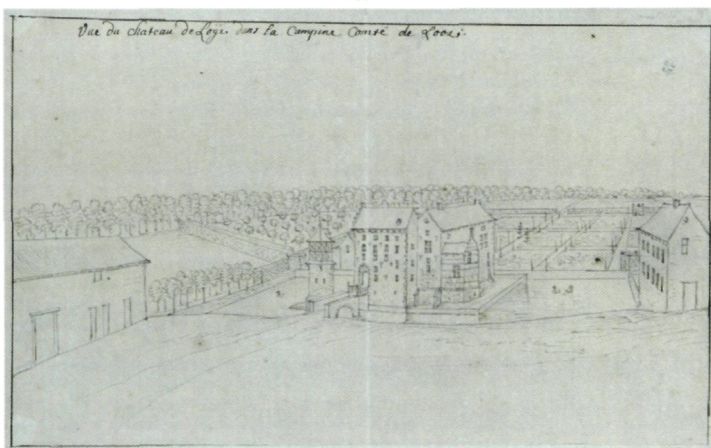 Vue du chateau de Loye dans la Campine Comté de Looz: